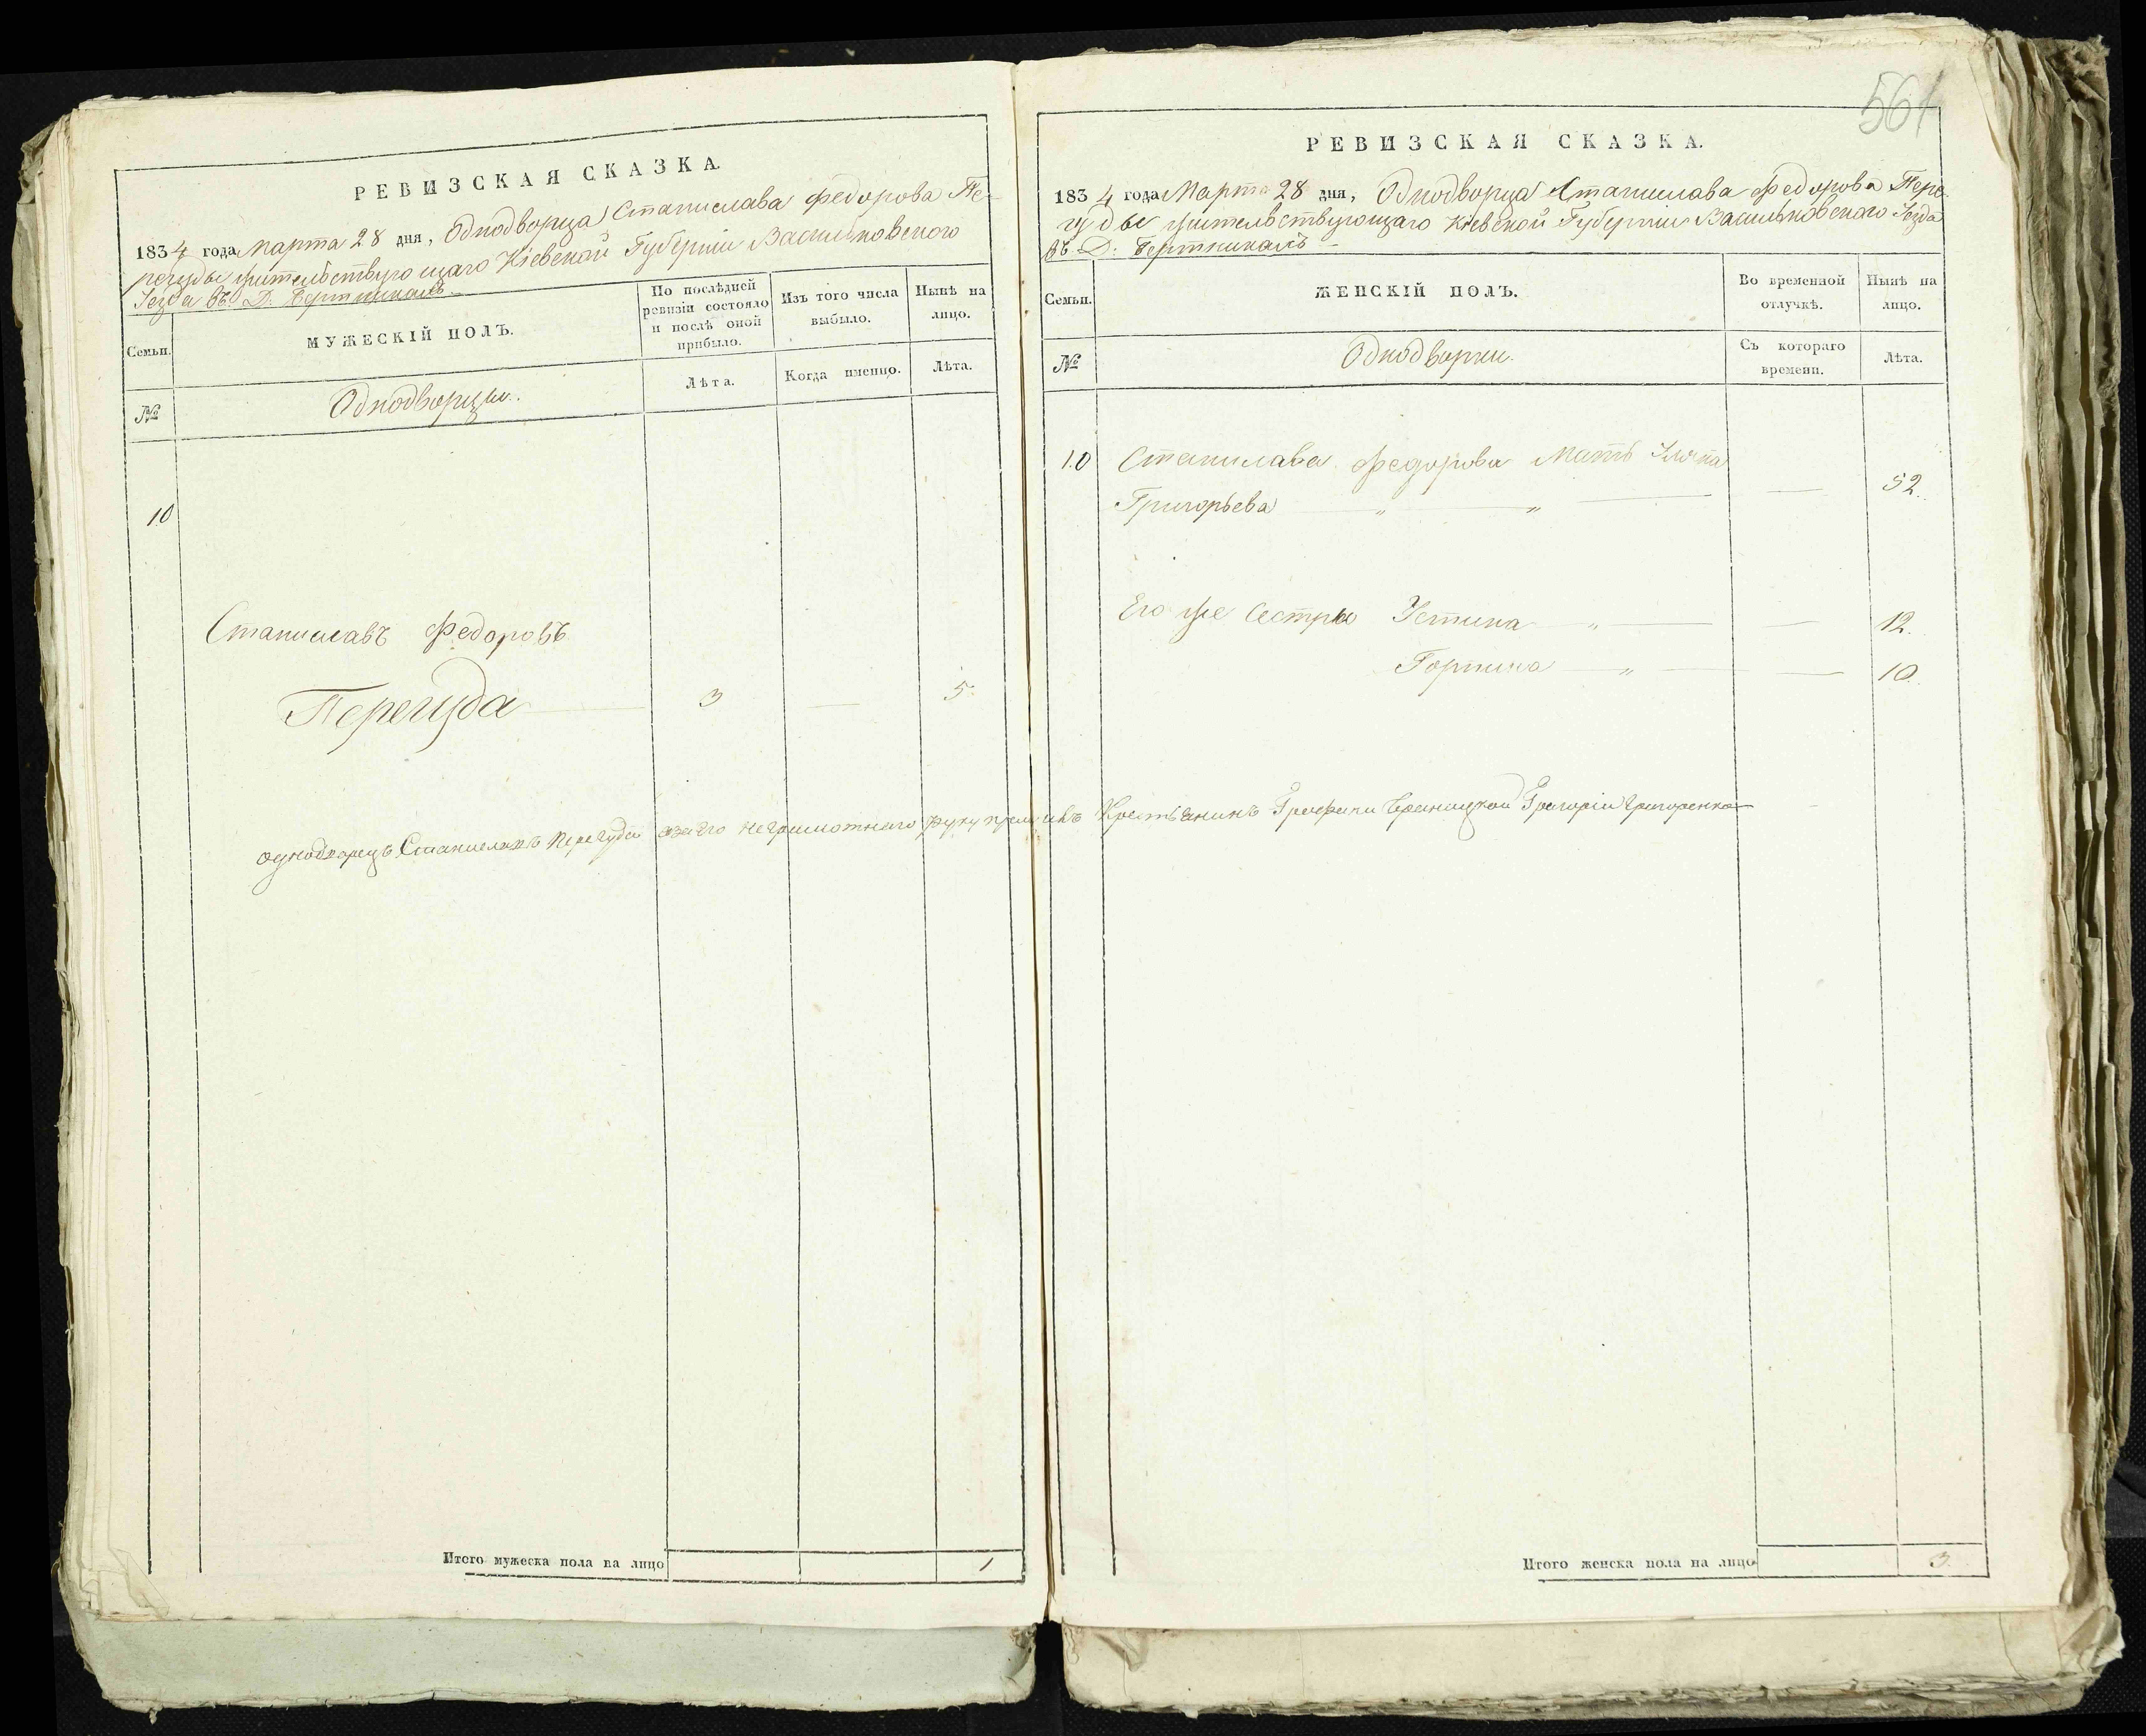 РЕВИЗСКАЯ СКАЗКА.
1834 года Марта 28 дня, Однодворца Станислава Федорова Пе-
регуды жительствующаго Кіевской Губерніи Васильковскаго
Уезда въ Д:
Семьи.
МУЖЕСКІЙ ПОЛЪ.
По послѣдней ревизіи состояло и послѣ оной прибыло.
Изъ того числа выбыло.
Нынѣ на лицо.
№
Однодворцы.
Лѣта.
Когда именно.
Лѣта.
10
Станиславъ Федоровъ
Перегуда 3 — 5
однодворецъ Станиславъ Перегуда а за его неграмотнаго руку приложивъ Крестьянинъ Графини Браницкой Григорій Григоренко
Итого мужеска пола на лицо 1
561
РЕВИЗСКАЯ СКАЗКА.
1834 года Марта 28 дня, Однодворца Станислава Федорова Пере-
гуды жительствующаго Кіевской Губерніи Васильковскаго Уезда
въ Д:
Семьи.
ЖЕНСКІЙ ПОЛЪ.
Во временной отлучкѣ.
Нынѣ на лицо.
№
Однодворки.
Съ котораго времени.
Лѣта.
10 Станислава Федорова Мать
Григорьева — „ — „ — — 52.
Его же Сестры Устина — „ — — 12.
Горпина — „ — — 10.
Итого женска пола на лицо 3